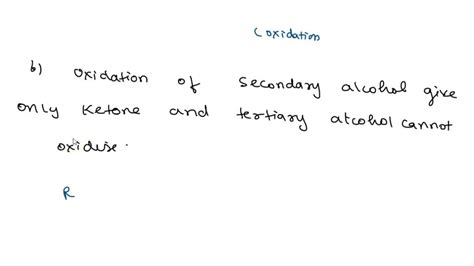 (oxidation
b) oxidation of secondary alcohol give
only Ketone and tertiary alcohol cannot
oxidise.
R